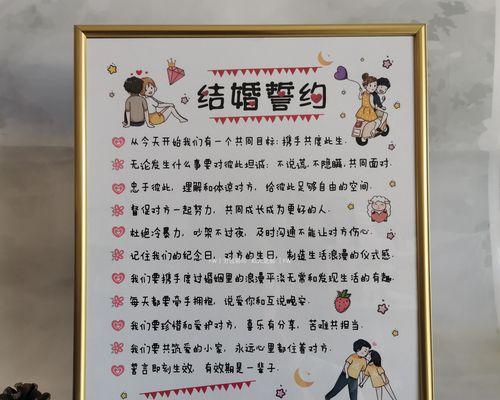 结婚誓约
从今天开始我们有一个共同目标:携手共度此生.
无论发生什么事要对彼此坦诚,不说谎,不隐瞒,共同面对.
忠于彼此,理解和体谅对方,给彼此足够自由的空间.
督促对方一起努力,共同成长成为更好的人.
杜绝冷暴力,吵架不过夜,及时沟通不能让对方伤心.
记住我们的纪念日,对方的生日,制造生活浪漫的仪式感.
我们要携手度过婚姻里的浪漫平淡无常和发现生活的有趣.
每天都要牵手拥抱,说爱你和互说晚安.
我们要珍惜和爱护对方,喜乐有分享,苦难共担当.
我们要共筑爱的小家,永远心里都住着对方.
誓言即刻生效,有效期是一辈子.